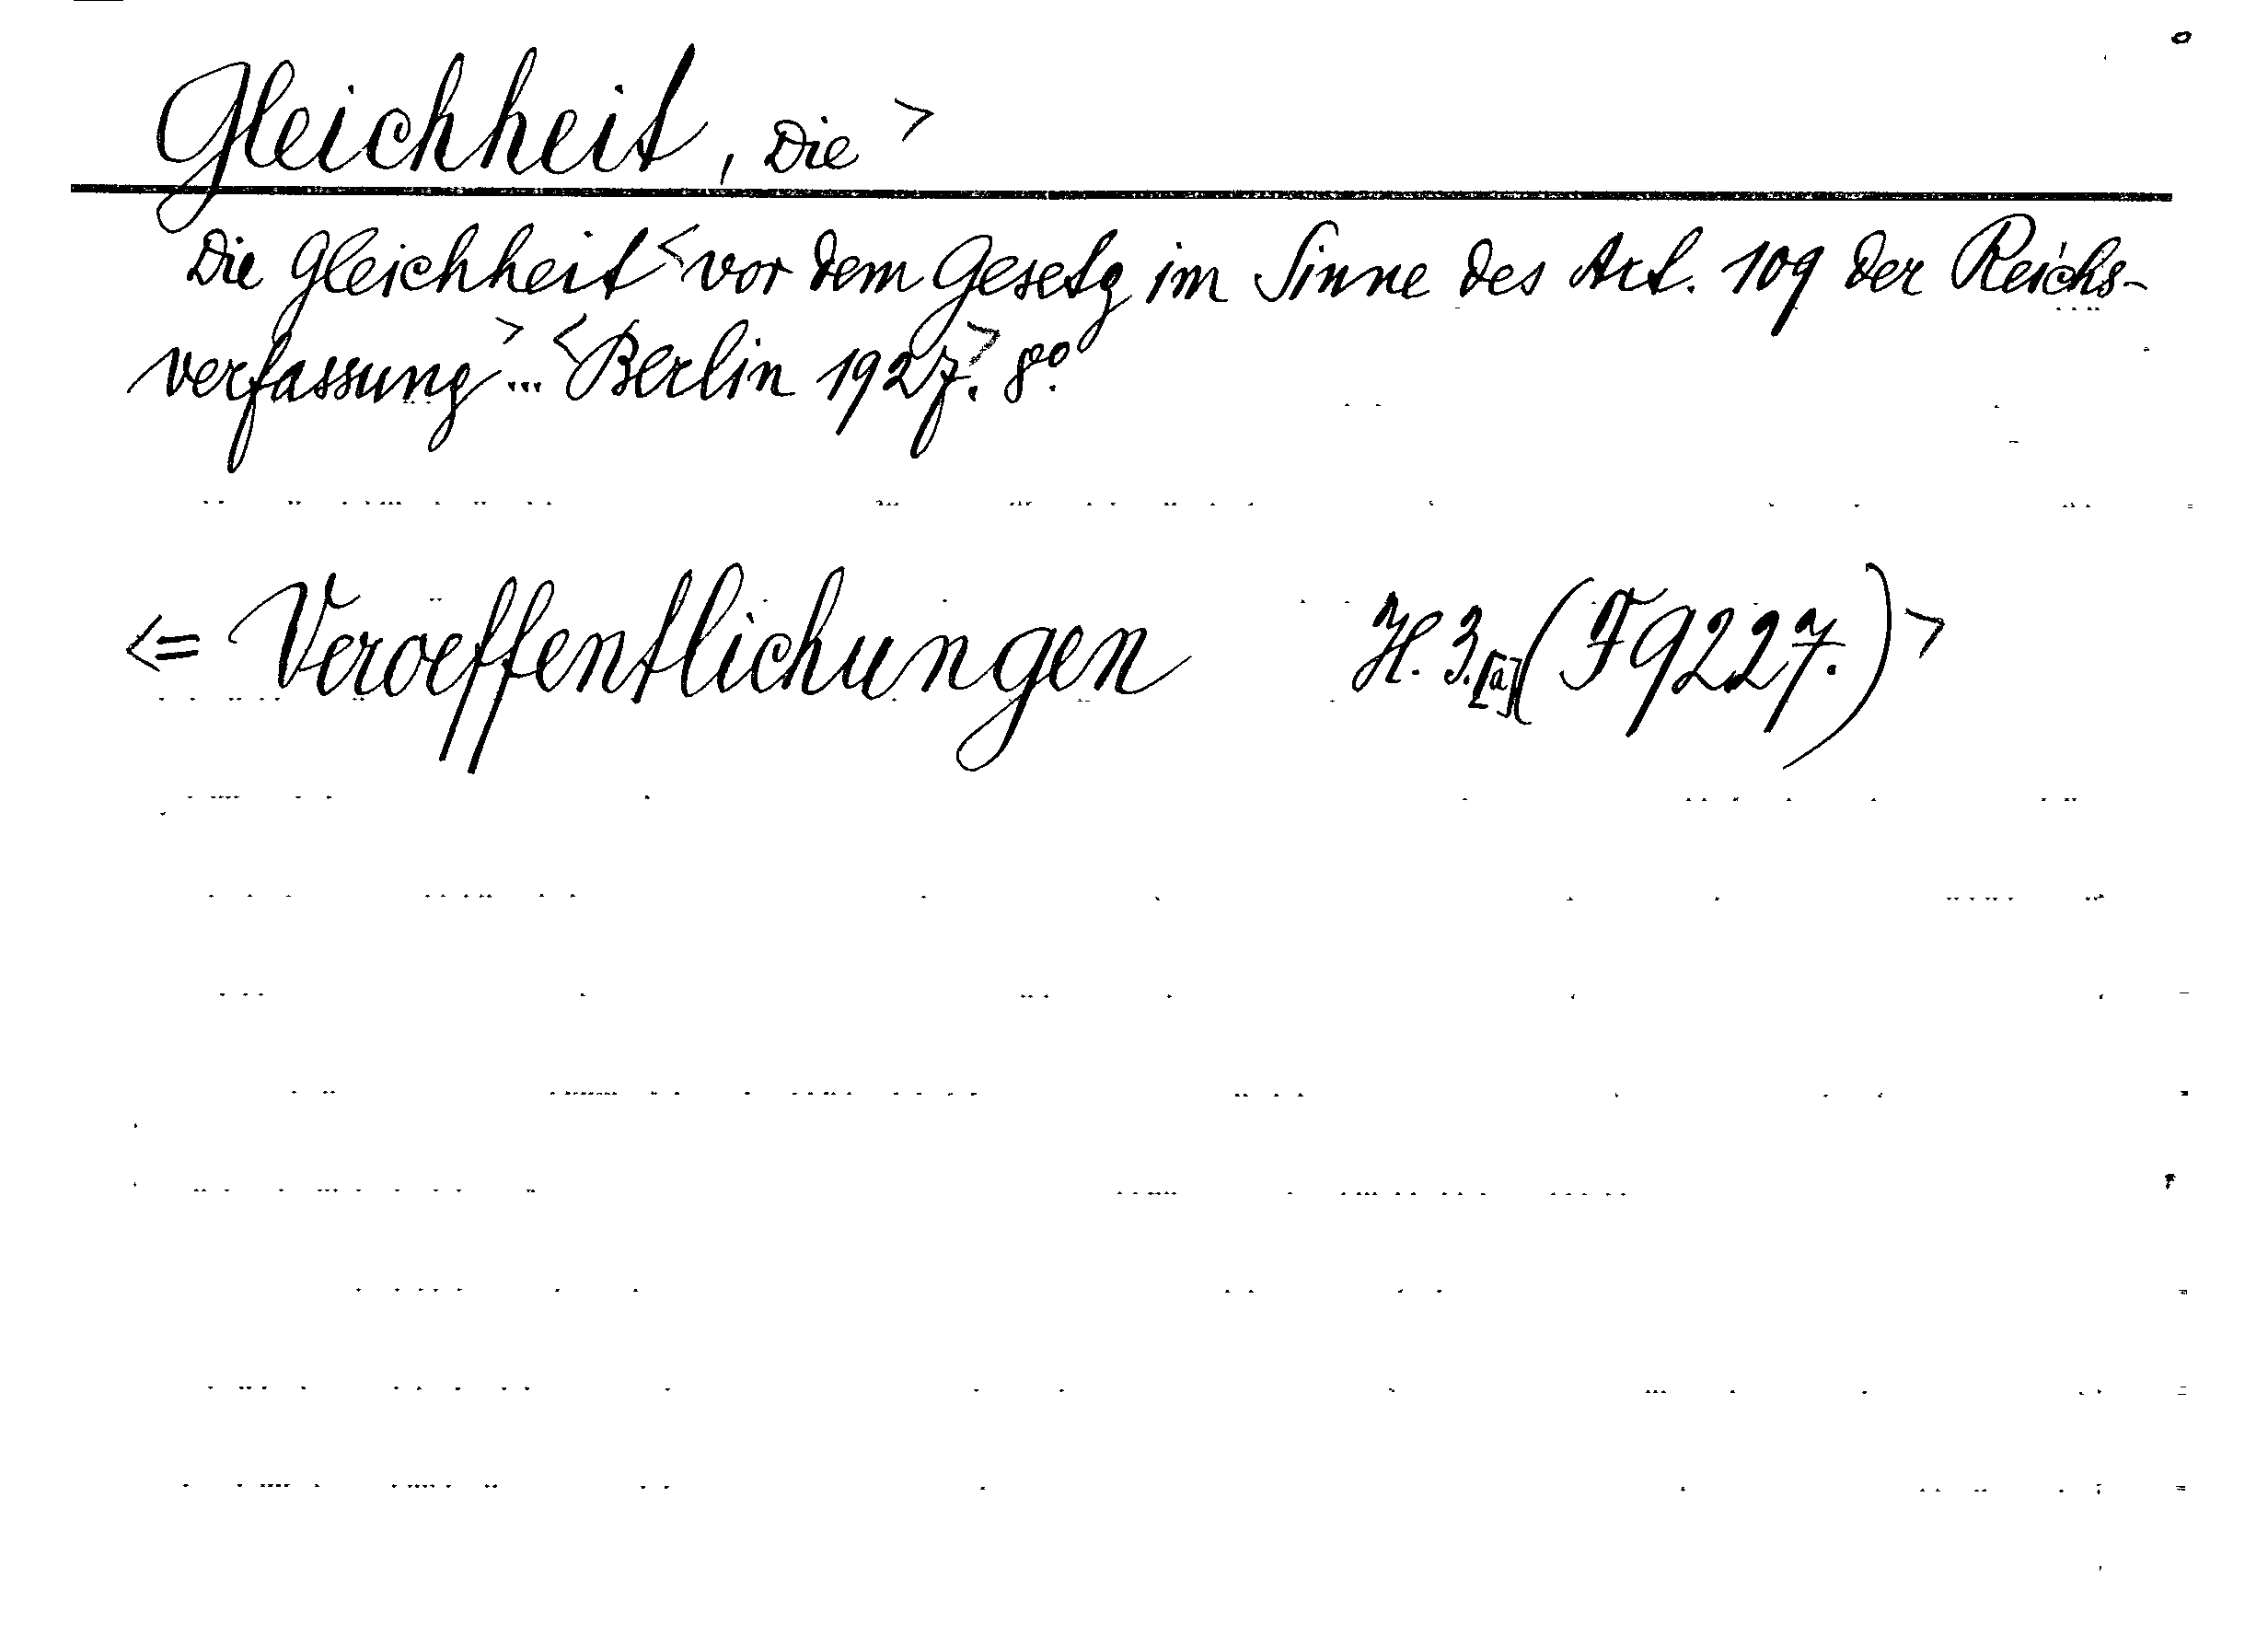 Gleichheit, Die >
Die Gleichheit < vor dem Gesetz im Sinne des Art. 109 der Reichs-
verfassung > ... < Berlin 1927. > 8°.
<= Veroeffentlichungen H. 3.[a] (F 9227.) >